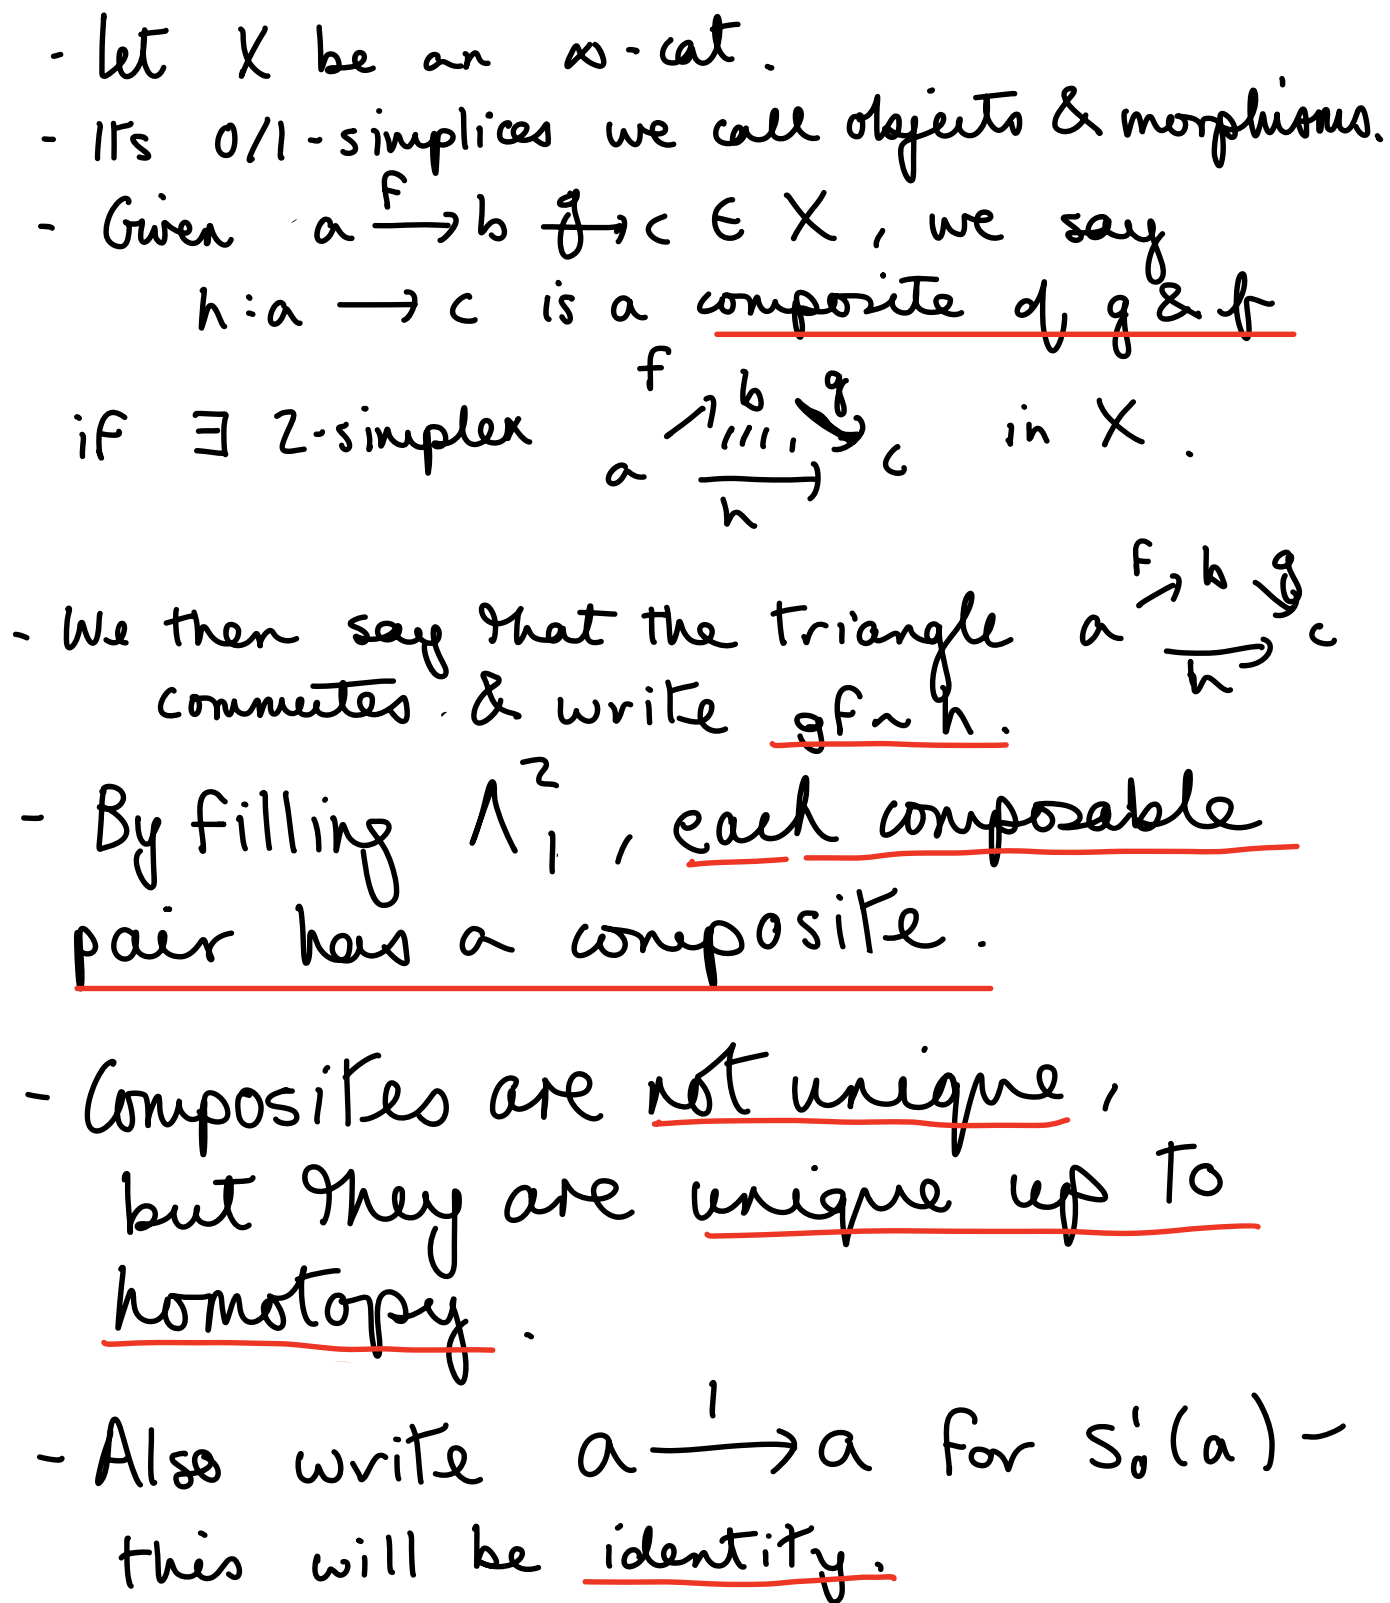 - Let X be an ∞-cat.
- Its 0/1-simplices we call objects & morphisms.
- Given a —f→ b —g→ c ∈ X, we say
h: a → c is a composite of g & f
if ∃ 2-simplex a f↗ b g↘ c →h in X.
- We then say that the triangle a f↗ b g↘ c →h
commutes & write gf ~ h.
- By filling Λ²₁, each composable
pair has a composite.
- Composites are not unique,
but they are unique up to
homotopy.
- Also write a —1→ a for s¹₀(a) -
this will be identity.